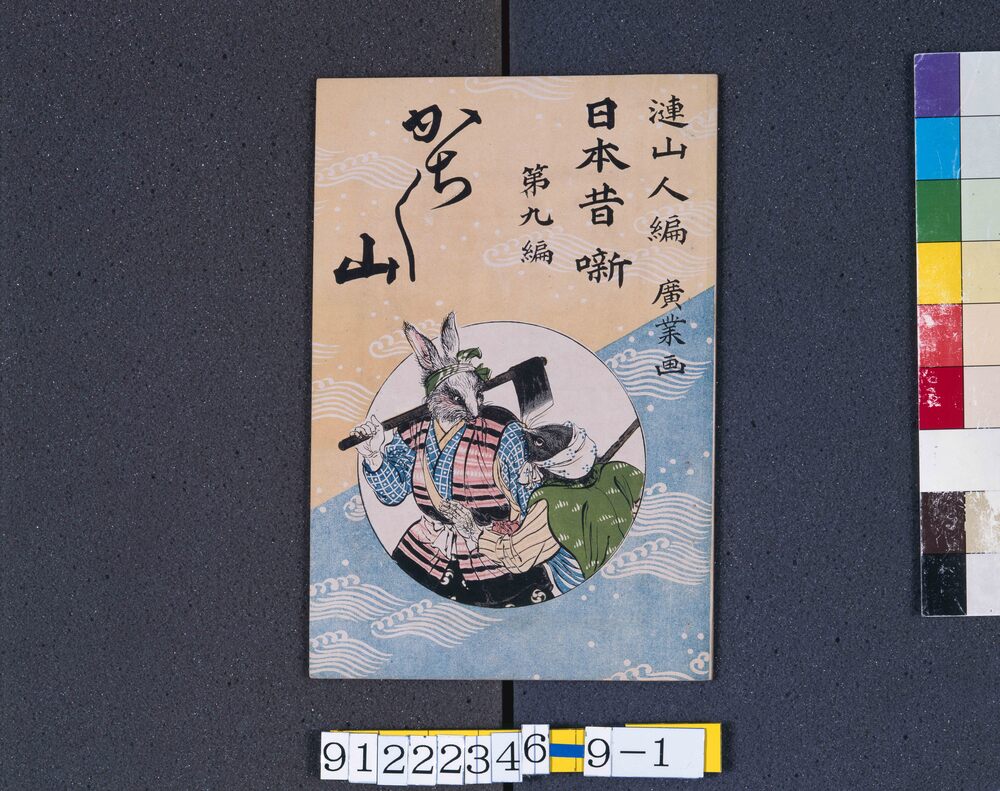 漣山人編 廣業画
日本昔噺
第九編
かち〱山
91222346=9-1